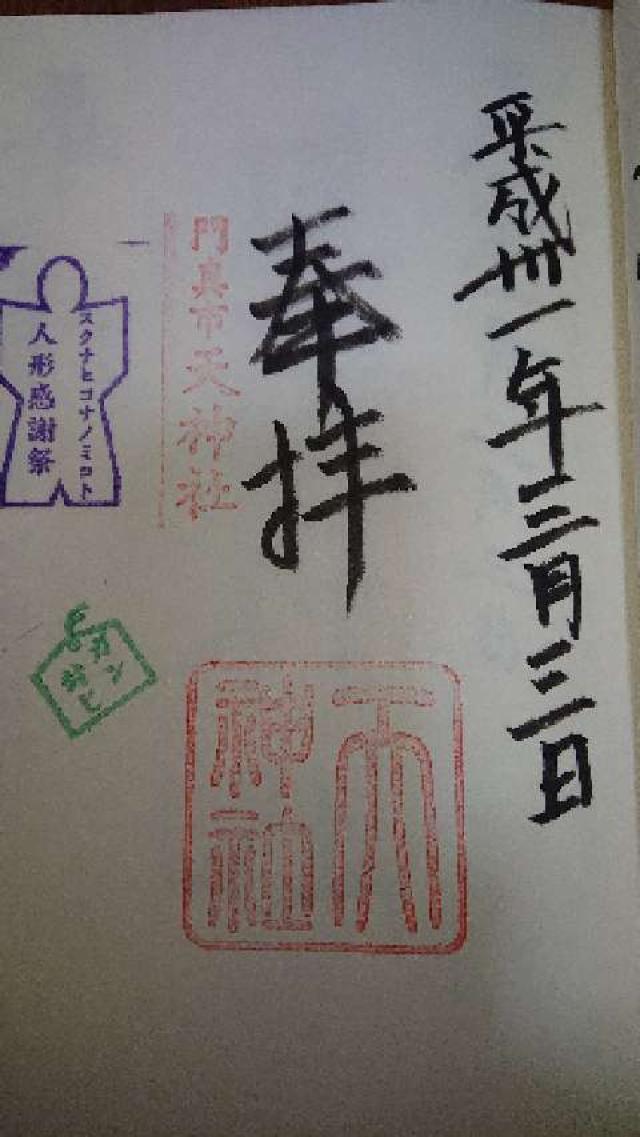 平成卅一年三月三日
奉拝
天神社
門真市天神社
スクナヒコナノミコト
人形感謝祭